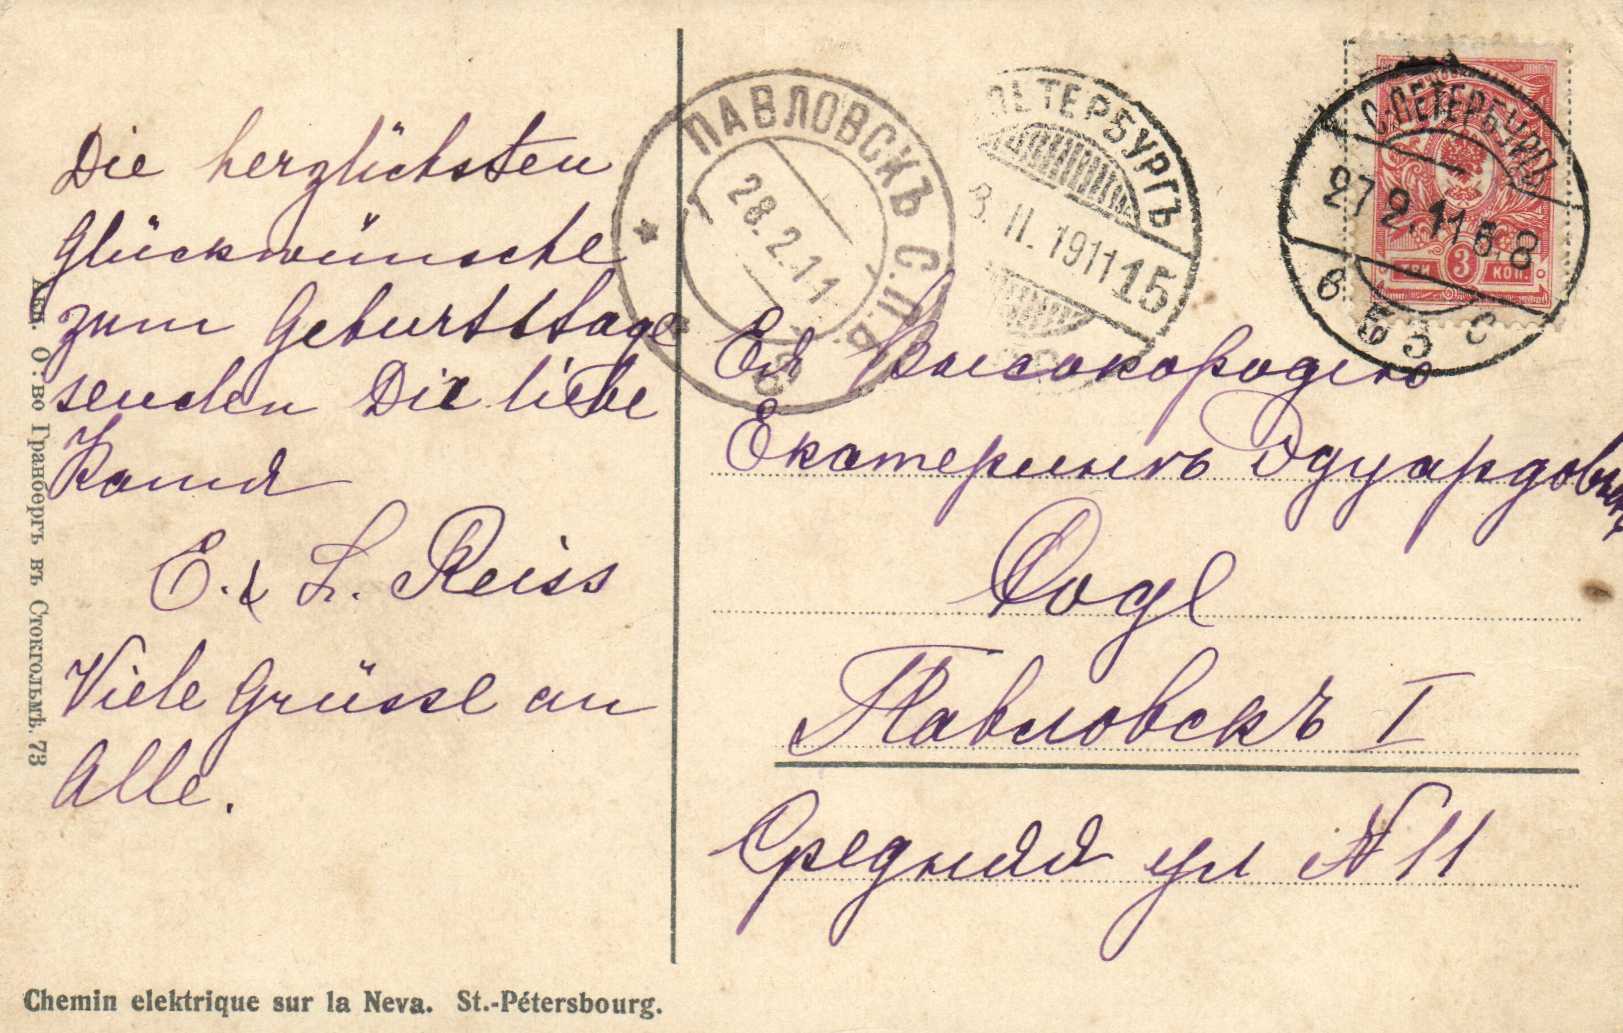 Die herzlichsten
Glückwünsche
zum Geburtstage
senden Dir liebe
Катя
E. & L. Reiss
Viele Grüsse an
Alle.
Акц. О-во Гранбергъ въ Стокгольмѣ. 73
Chemin elektrique sur la Neva. St.-Pétersbourg.
ПАВЛОВСКЪ С.П.Б.
28.2.11
ПЕТЕРБУРГЪ
II. 1911 15
С-ПЕТЕРБУРГЪ
27 2 11 8
ТРИ 3 КОП.
Ея Высокородію
Екатеринѣ Эдуардовнѣ
Фогель
Павловскъ I
Средняя ул № 11